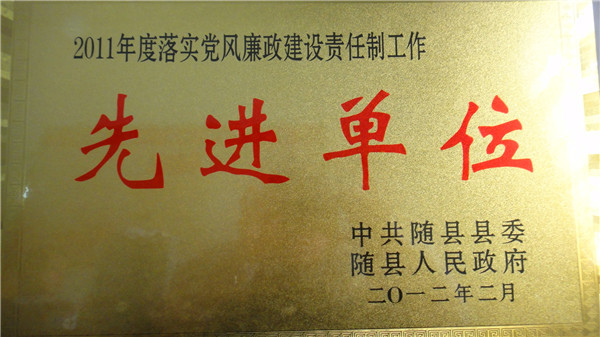 2011年度落实党风廉政建设责任制工作
先进单位
中共随县县委
随县人民政府
二〇一二年二月